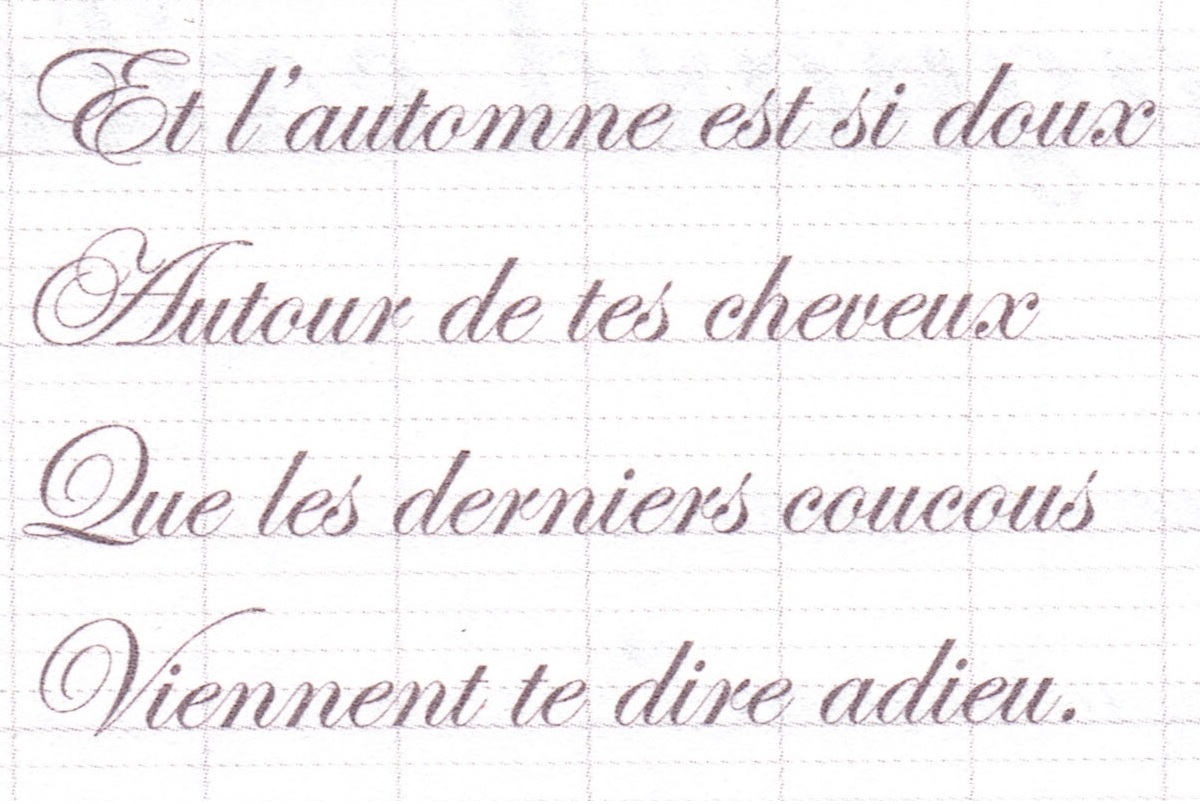 Et l'automne est si doux
Autour de tes cheveux
Que les derniers coucous
Viennent te dire adieu.